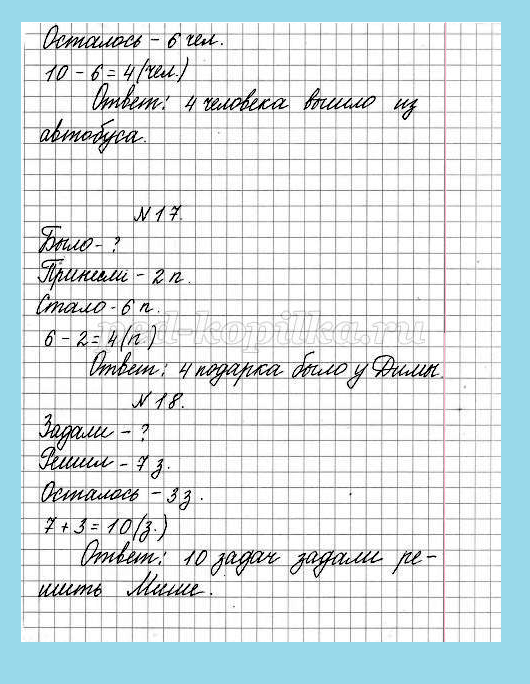 Осталось – 6 чел.
10 – 6 = 4 (чел.)
Ответ: 4 человека вышло из
автобуса.
№ 17.
Было – ?
Принесли – 2 п.
Стало – 6 п.
ped-kopilka.ru
6 – 2 = 4 (п)
Ответ: 4 подарка было у Димы.
№ 18.
Задали – ?
Решил – 7 з.
Осталось – 3 з.
7 + 3 = 10 (з.)
Ответ: 10 задач задали ре-
шить Мише.